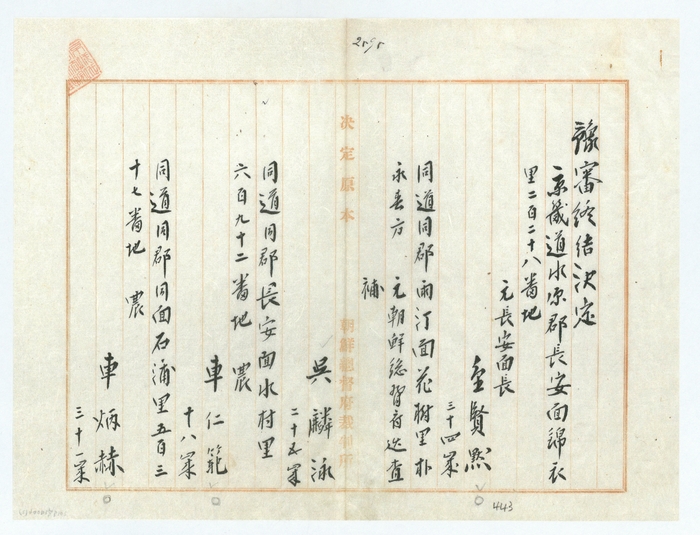 豫審終結決定
京畿道水原郡長安面錦衣
里二百二十八番地
元長安面長
金賢黙
三十四歳
同道同郡雨汀面花樹里朴
永春方 元朝鮮総督府巡査
補
決定原本 朝鮮總督府裁判所
吳麟泳
二十五歳
同道同郡長安面水村里
六百九十二番地 農
車仁範
十八歳
同道同郡同面石浦里五百三
十七番地 農
車炳赫
三十一歳
443